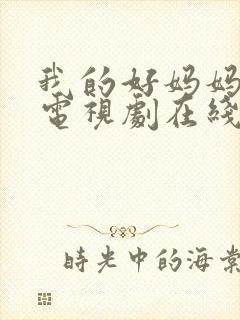 我的好妈妈
電視劇在綫
時光中的海棠